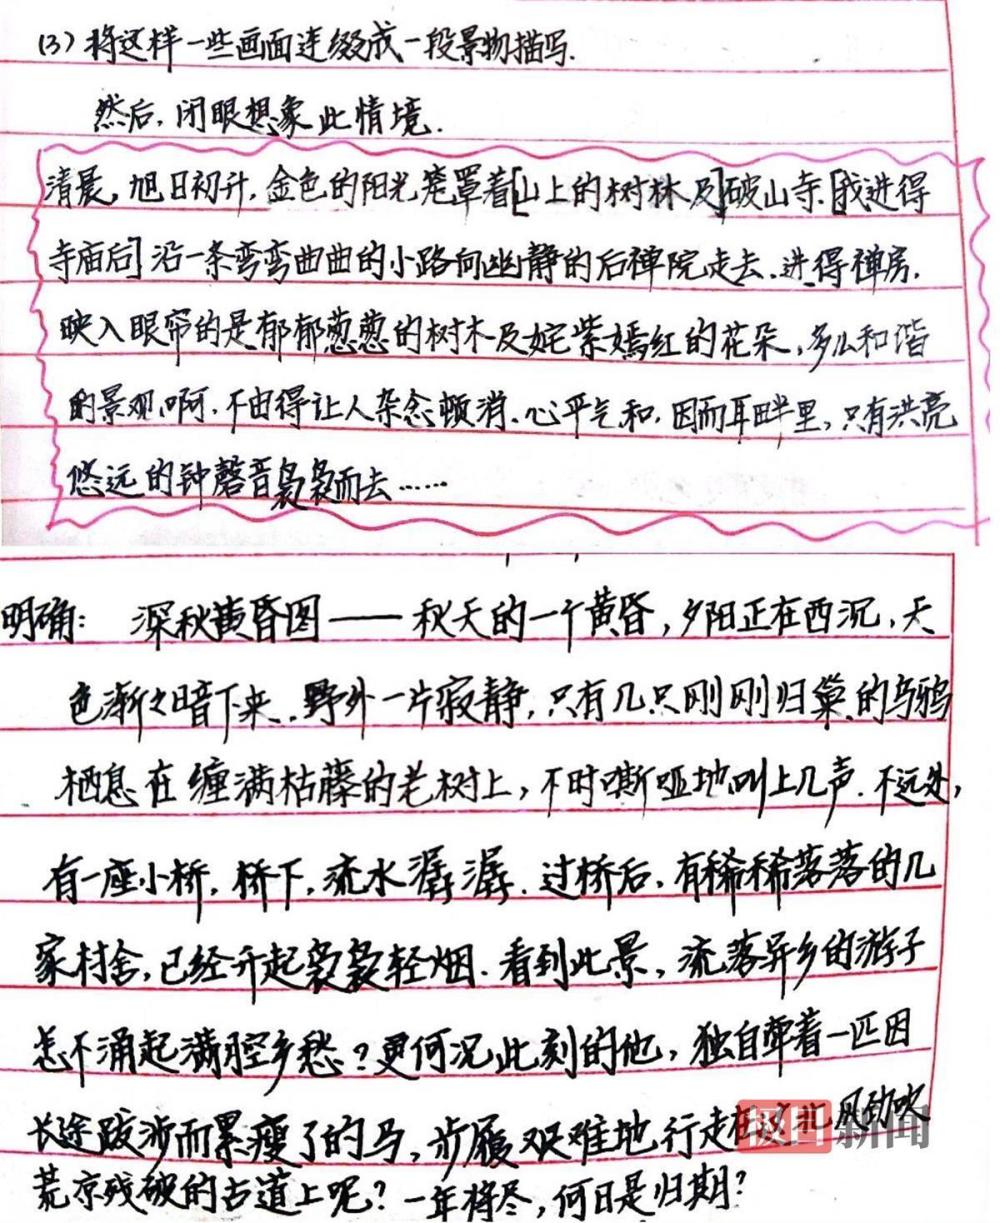 (3) 将这样一些画面连缀成一段景物描写.
然后,闭眼想象此情境.
清晨,旭日初升,金色的阳光笼罩着[山上的树林及]破山寺.[我进得
寺庙后]沿一条弯弯曲曲的小路向幽静的后禅院走去.进得禅房.
映入眼帘的是郁郁葱葱的树木及姹紫嫣红的花朵,多么和谐
的景观啊,不由得让人杂念顿消、心平气和,因而耳畔里,只有洪亮
悠远的钟磬音袅袅而去……
明确: 深秋黄昏图——秋天的一个黄昏,夕阳正在西沉,天
色渐渐暗下来.野外一片寂静,只有几只刚刚归巢的乌鸦
栖息在缠满枯藤的老树上,不时嘶哑地叫上几声.不远处,
有一座小桥,桥下,流水潺潺.过桥后,有稀稀落落的几
家村舍,已经升起袅袅轻烟.看到此景,流落异乡的游子
怎不涌起满腔乡愁?更何况此刻的他,独自牵着一匹因
长途跋涉而累瘦了的马,步履艰难地行走在被北风劲吹
荒凉残破的古道上呢?一年将尽,何日是归期?
极目新闻